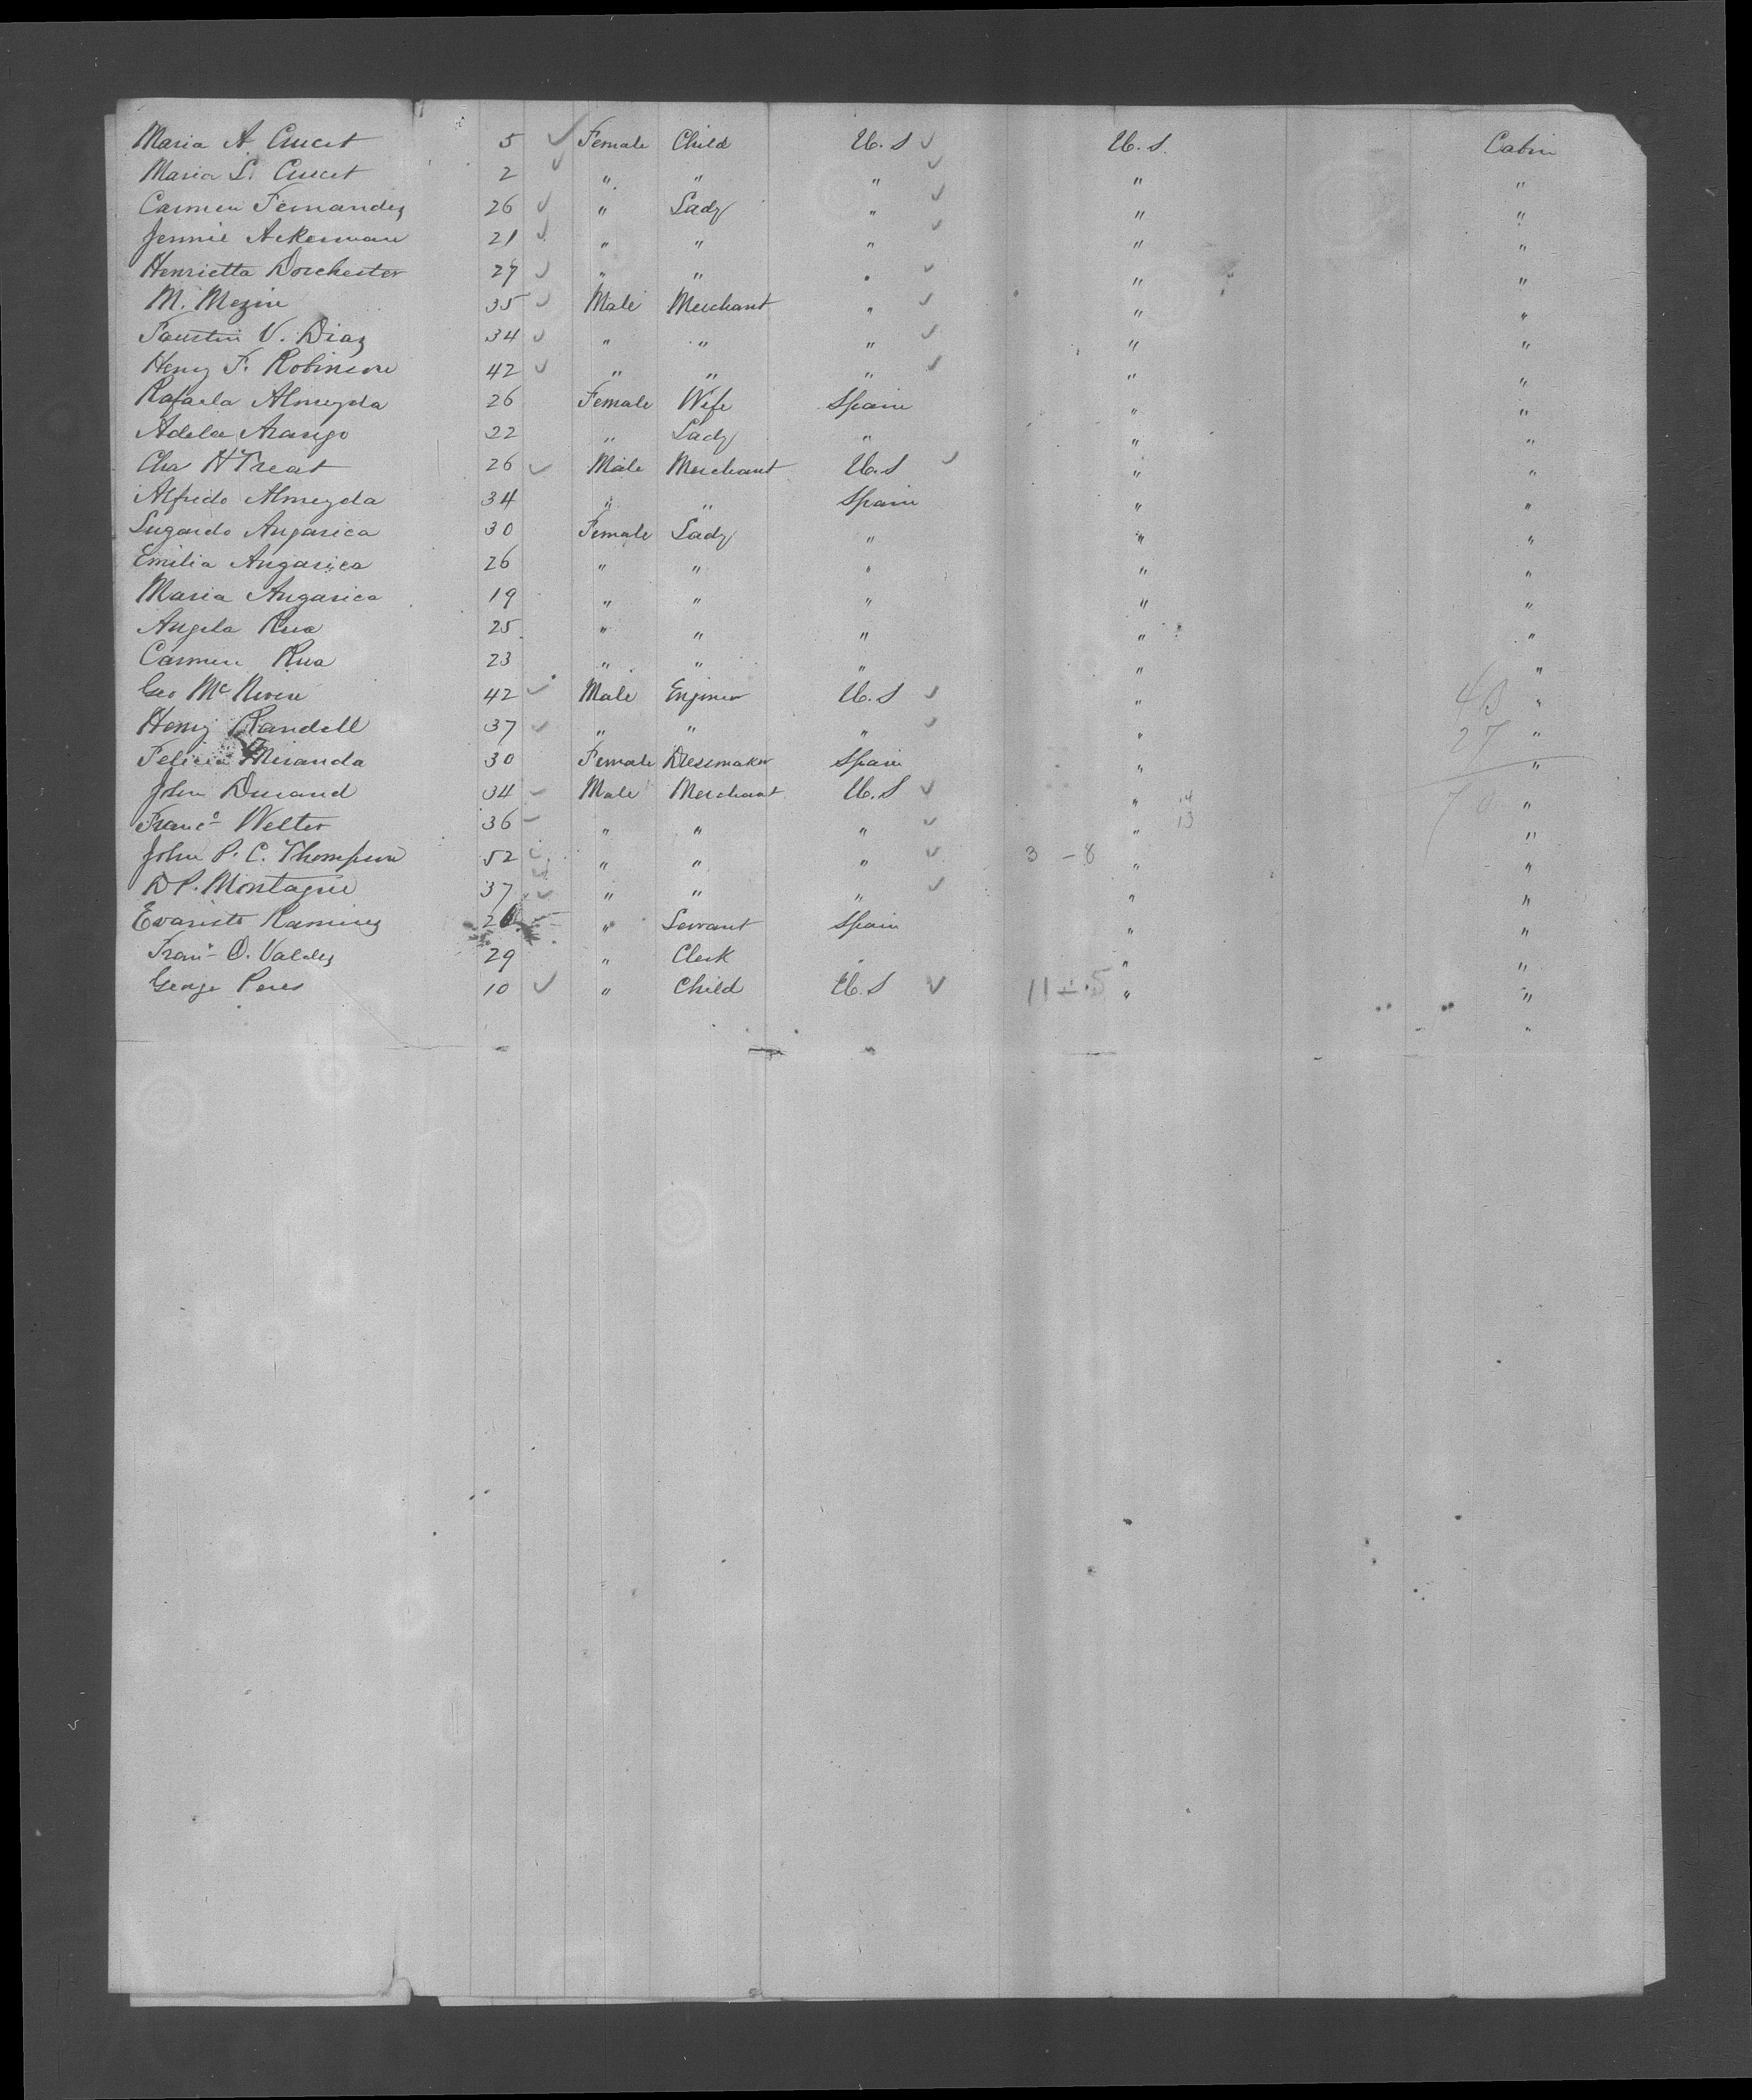 Maria A. Cucet 5 ✓ Female Child U.S ✓ U.S. Cabin
Maria L. Cucet 2 ✓ " " " ✓ " "
Carmen Fernandez 26 ✓ " Lady " ✓ " "
Jennie Ackerman 21 ✓ " " " ✓ " "
Henrietta Dorchester 27 ✓ " " " ✓ " "
M. Mezin 35 ✓ Male Merchant " ✓ " "
Faustin V. Diaz 34 ✓ " " " ✓ " "
Henry F. Robinson 42 ✓ " " " ✓ " "
Rafaela Almeyda 26 Female Wife Spain " "
Adela Arango 22 " Lady " " "
Cha H Treat 26 ✓ Male Merchant U.S ✓ " "
Alfredo Almeyda 34 " " Spain " "
Lugardo Angarica 30 Female Lady " " "
Emilia Angarica 26 " " " " "
Maria Angarica 19 " " " " "
Angela Rua 25 " " " " "
Carmen Rua 23 " " " " "
Geo McNiven 42 ✓ Male Engineer U.S ✓ " "
Henry Randell 37 ✓ " " " ✓ " 27 "
Felicia Miranda 30 Female Dressmaker Spain " "
John Durand 34 ✓ Male Merchant U.S ✓ " 14 70 "
Franco Welter 36 ✓ " " " ✓ " 13 "
John P. C. Thompson 52 ✓ " " " ✓ 3 - 8 " "
D P. Montague 37 ✓ " " " ✓ " "
Evaristo Ramirez " Servant Spain " "
Franco O. Valdez 29 " Clerk " " "
George Peres 10 ✓ " Child U.S ✓ 11 5 " "